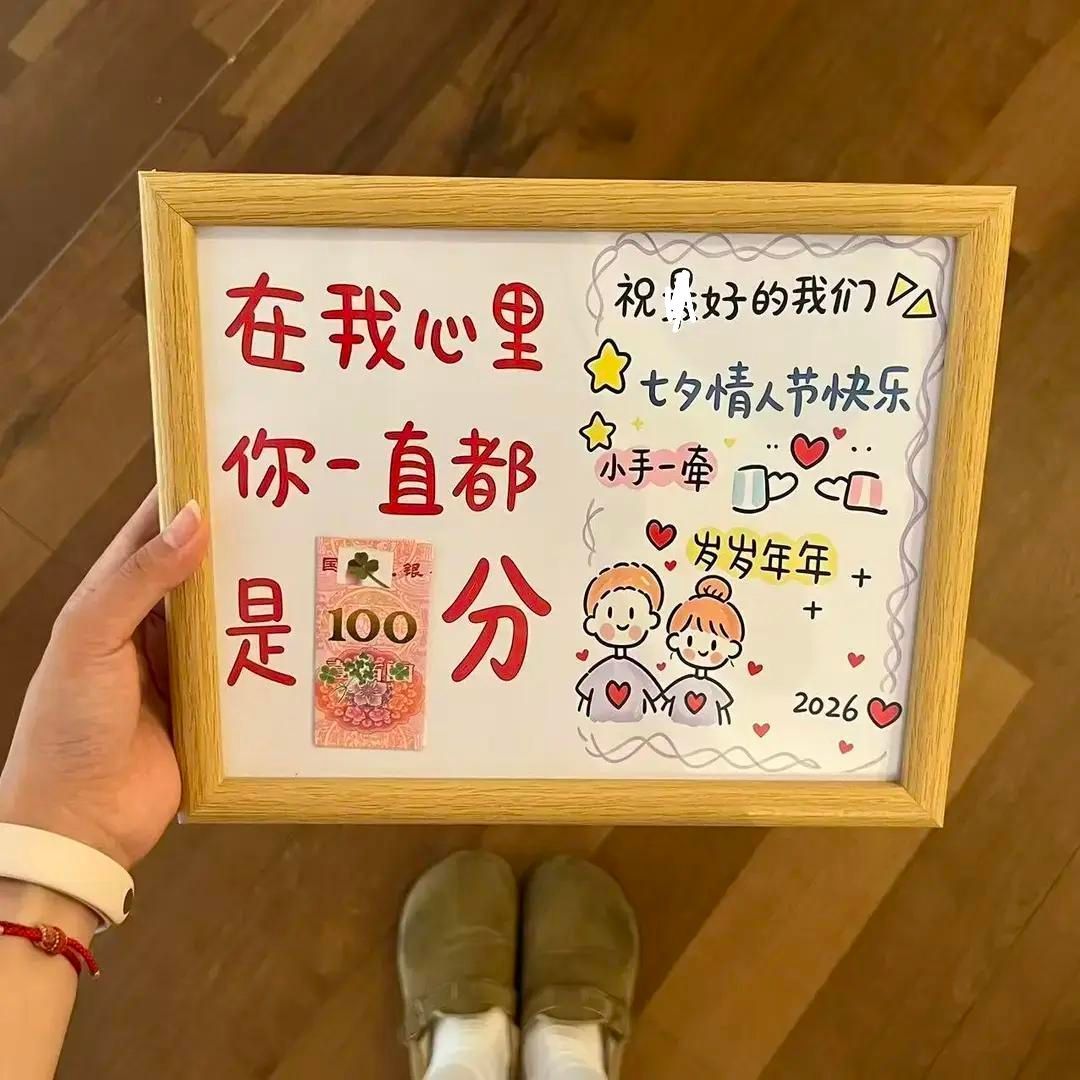 在我心里
你一直都
是 100 分
国 银
祝 好的我们
七夕情人节快乐
小手一牵
岁岁年年
2026